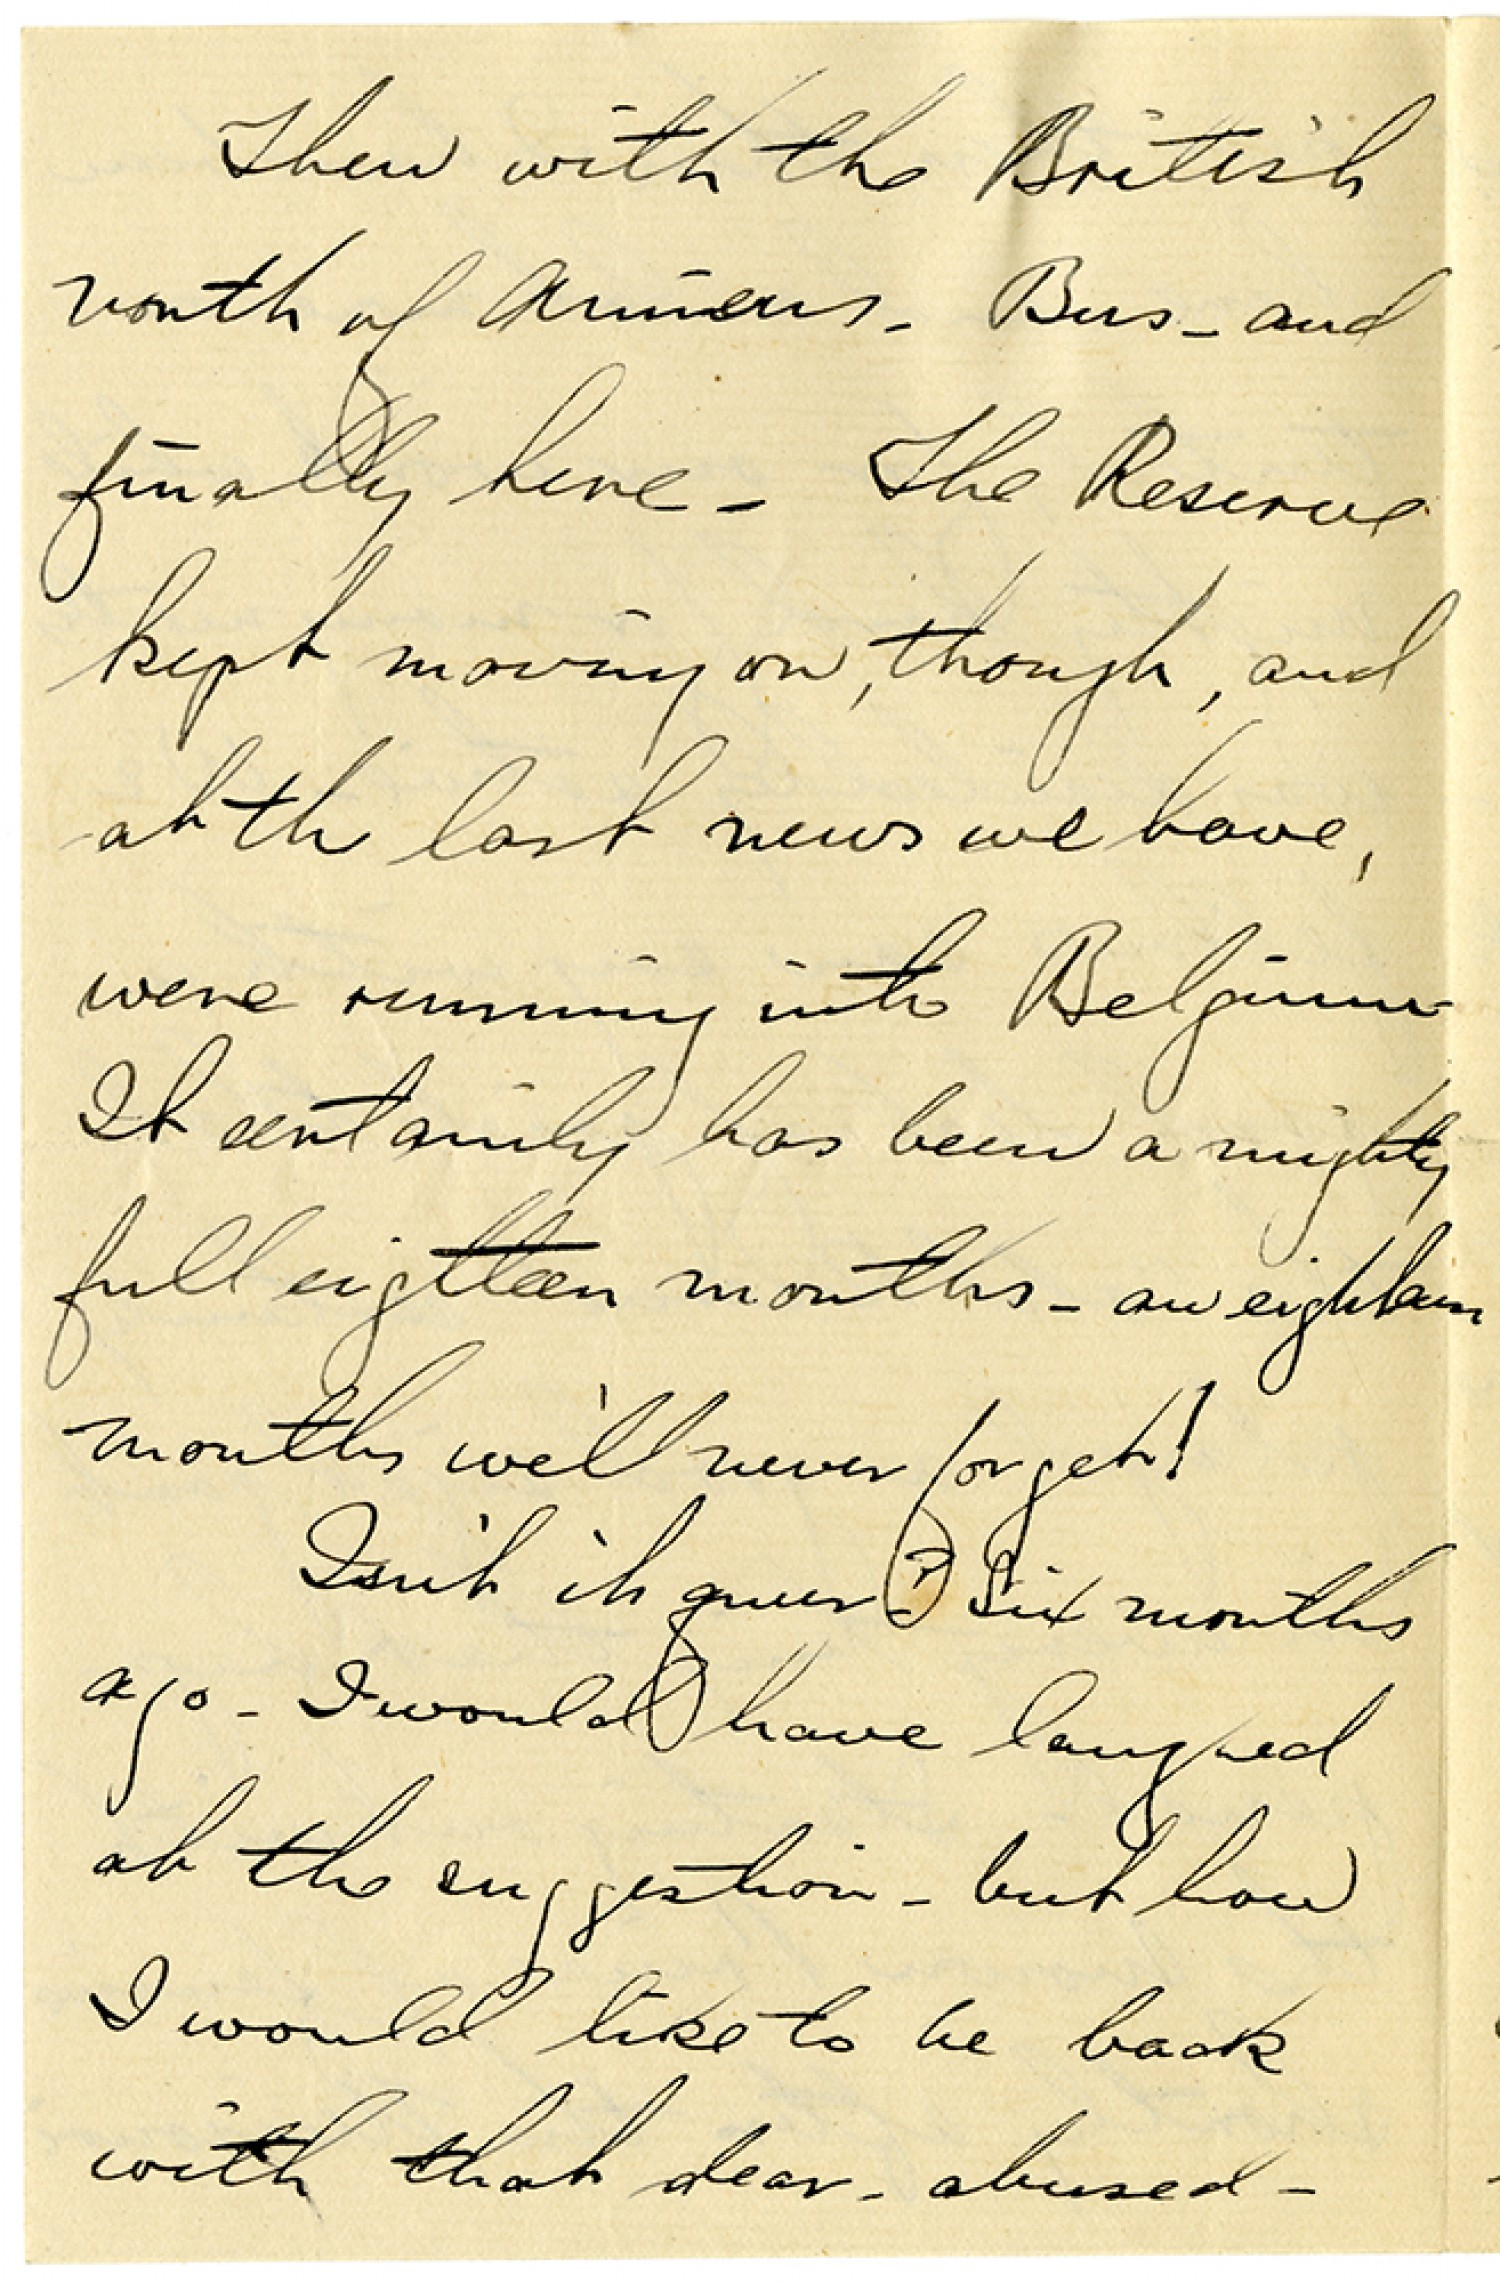 Then with the British
north of Amiens - Bus - and
finally here - The Reserve
kept moving on, though, and
at the last news we have,
were running into Belgium -
It certainly has been a mighty
full eighteen months - an eighteen
months we'll never forget!
Isn't it queer? Six months
ago - I would have laughed
at the suggestion - but how
I would like to be back
with that dear - abused -